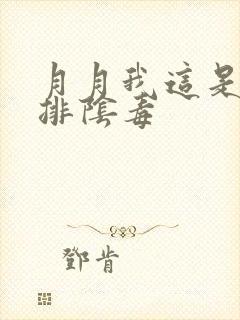 月月我這是
排陰毒
鄧肯